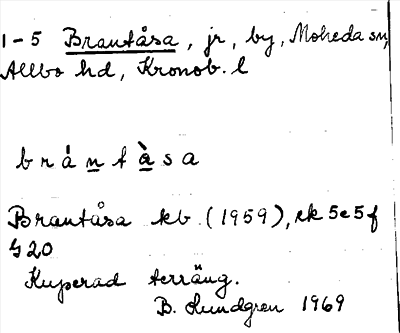 1-5 Brantåsa, jr, by, Moheda sn,
Allbo hd, Kronob. l
b r á n t à s a
Brantåsa kb. (1959), ek 5e5f
§20
Kuperad terräng.
B. Lundgren 1969